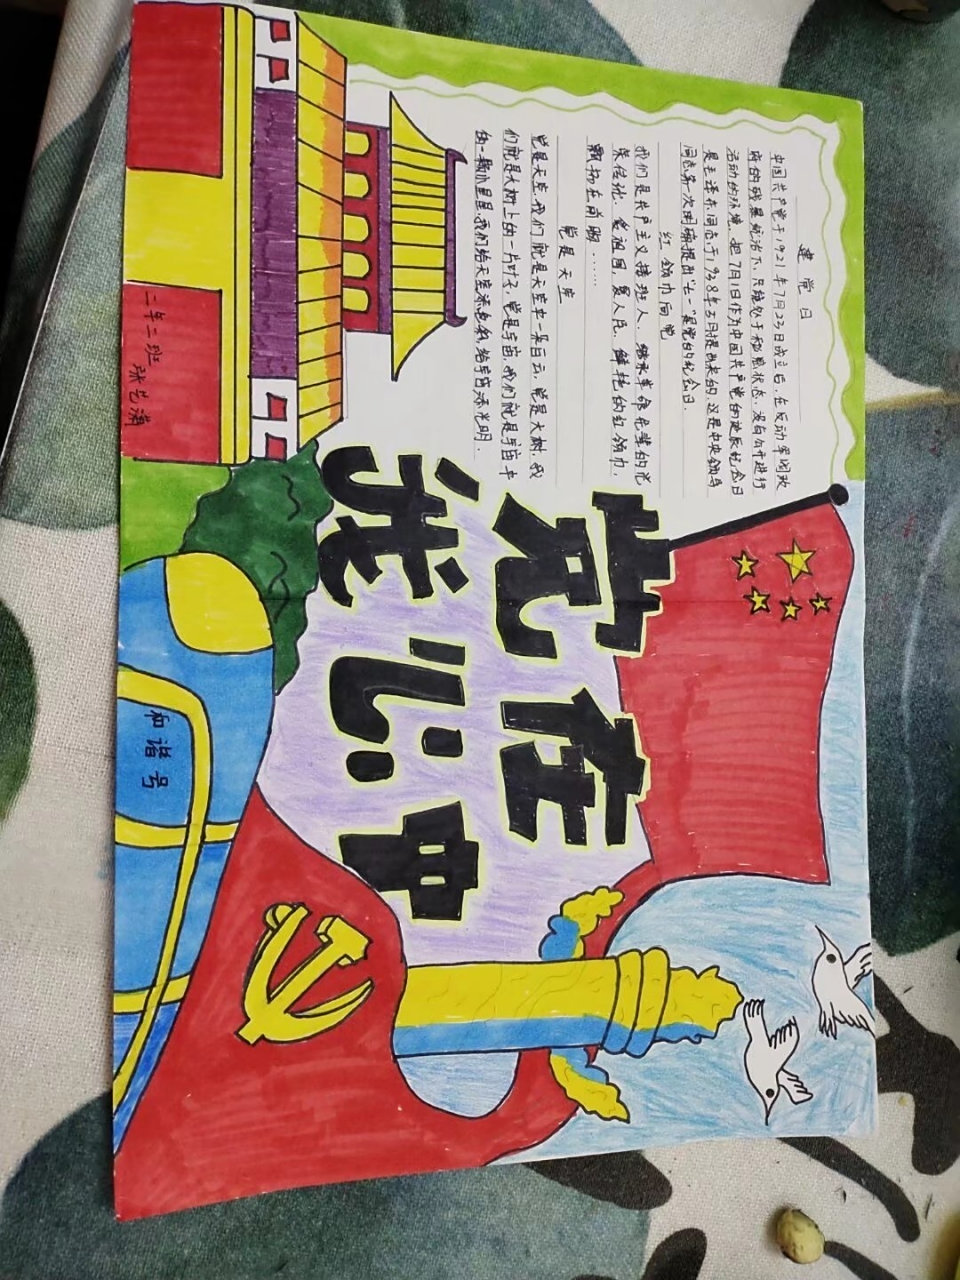 建党日
中国共产党于1921年7月23日成立后，在反动军阀政
府的残暴统治下，只能处于秘密状态，没有公开进行
活动的环境。把7月1日作为中国共产党的诞辰纪念日
是毛泽东同志于1938年5月提出来的，这是中央领导
同志第一次明确提出"七一"是党的纪念日。
红领巾向党
我们是共产主义接班人，继承革命先辈的光
荣传统，爱祖国，爱人民，鲜艳的红领巾，
飘扬在前胸……
党是天空
党是天空，我们就是天空中一朵白云，党是大树，我
们就是大树上的一片叶子，党是宇宙，我们就是宇宙中
的一颗小星星，我们给天空添色彩，给宇宙添光明。
党在
我心中
二年二班 张艺潇
和谐号